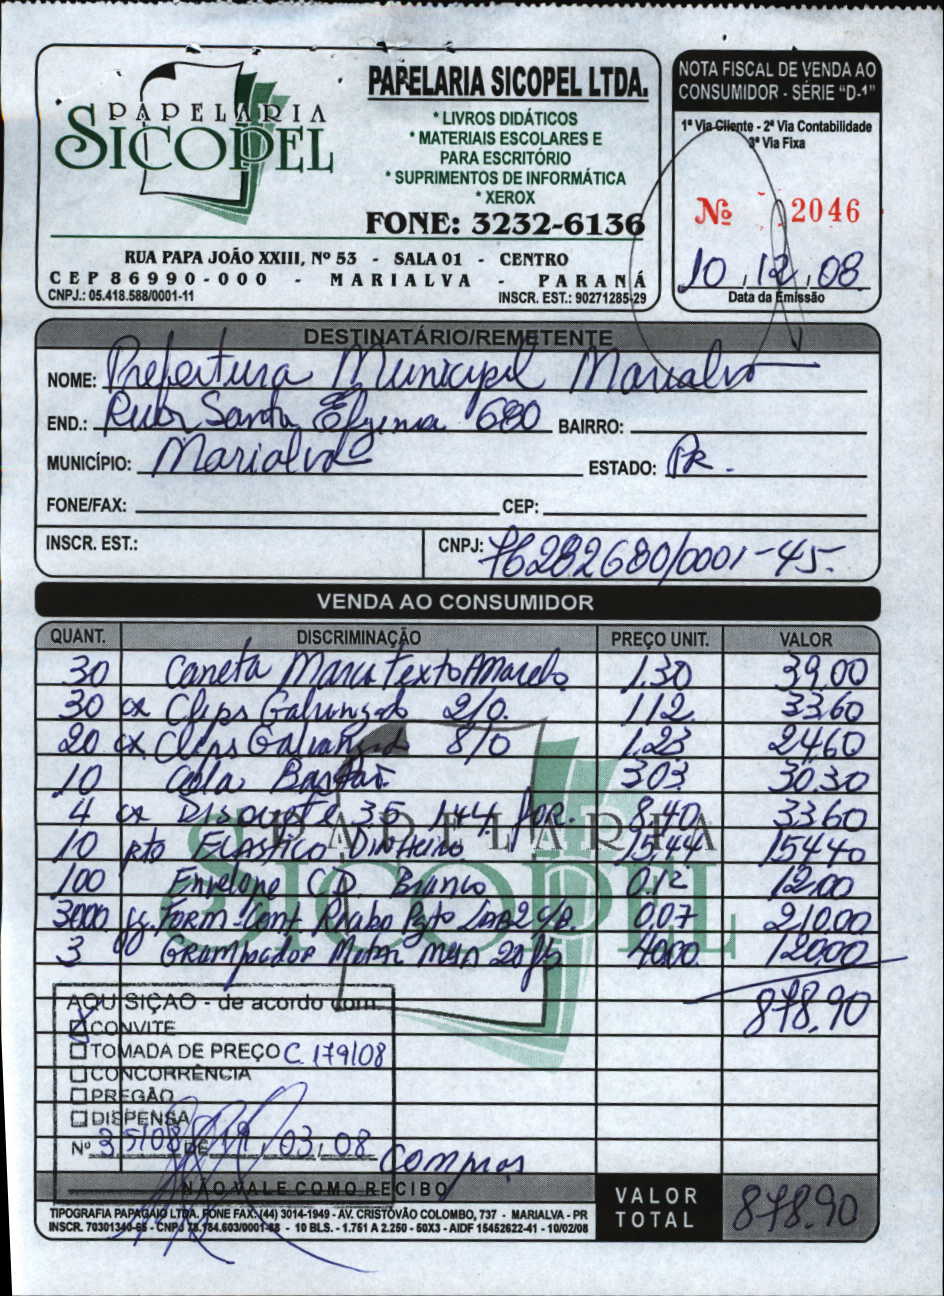 PAPELARIA
SICOPEL
PAPELARIA SICOPEL LTDA.
* LIVROS DIDÁTICOS
* MATERIAIS ESCOLARES E
PARA ESCRITÓRIO
* SUPRIMENTOS DE INFORMÁTICA
* XEROX
FONE: 3232-6136
RUA PAPA JOÃO XXIII, Nº 53 - SALA 01 - CENTRO
CEP 86990-000 - MARIALVA - PARANÁ
CNPJ.: 05.418.588/0001-11 INSCR. EST.: 90271285-29
NOTA FISCAL DE VENDA AO
CONSUMIDOR - SÉRIE "D-1"
1ª Via Cliente - 2ª Via Contabilidade
3ª Via Fixa
Nº 2046
10, 12, 08
Data da Emissão
DESTINATÁRIO/REMETENTE
NOME: Prefeitura Municipal Marialva
END.: Rua Santa Efigenia 680 BAIRRO:
MUNICÍPIO: Marialva ESTADO: Pr.
FONE/FAX: CEP:
INSCR. EST.: CNPJ: 76282680/0001-45-
VENDA AO CONSUMIDOR
QUANT. DISCRIMINAÇÃO PREÇO UNIT. VALOR
30 Caneta Marca Texto Amarelo 1,30 39,00
30 cx Clips Galvanizado 2/0. 1,12 33,60
20 cx Clips Galvanizado 8/0 1,23 24,60
10 Cola Bastão 3,03 30,30
4 cx Disquete 35 144 8,40 33,60
10 pto Elastico Dinheiro 15,44 154,40
100 Envelope CD Branco 0,12 12,00
3000 Form. Cont. Recibo Pgto 0,07 210,00
3 Grampeador Metal 40,00 120,00
878,90
AQUISIÇÃO - de acordo com
X CONVITE
TOMADA DE PREÇO C. 179/08
CONCORRÊNCIA
PREGÃO
DISPENSA
Nº 35/08 DE 19, 03, 08
Compras
NÃO VALE COMO RECIBO
VALOR TOTAL 878,90
TIPOGRAFIA PAPAGAIO LTDA. FONE FAX: (44) 3014-1949 - AV. CRISTÓVÃO COLOMBO, 737 - MARIALVA - PR
INSCR. 70301340-65 - CNPJ 78.184.603/0001-68 - 10 BLS. - 1.751 A 2.250 - 50X3 - AIDF 15452622-41 - 10/02/08